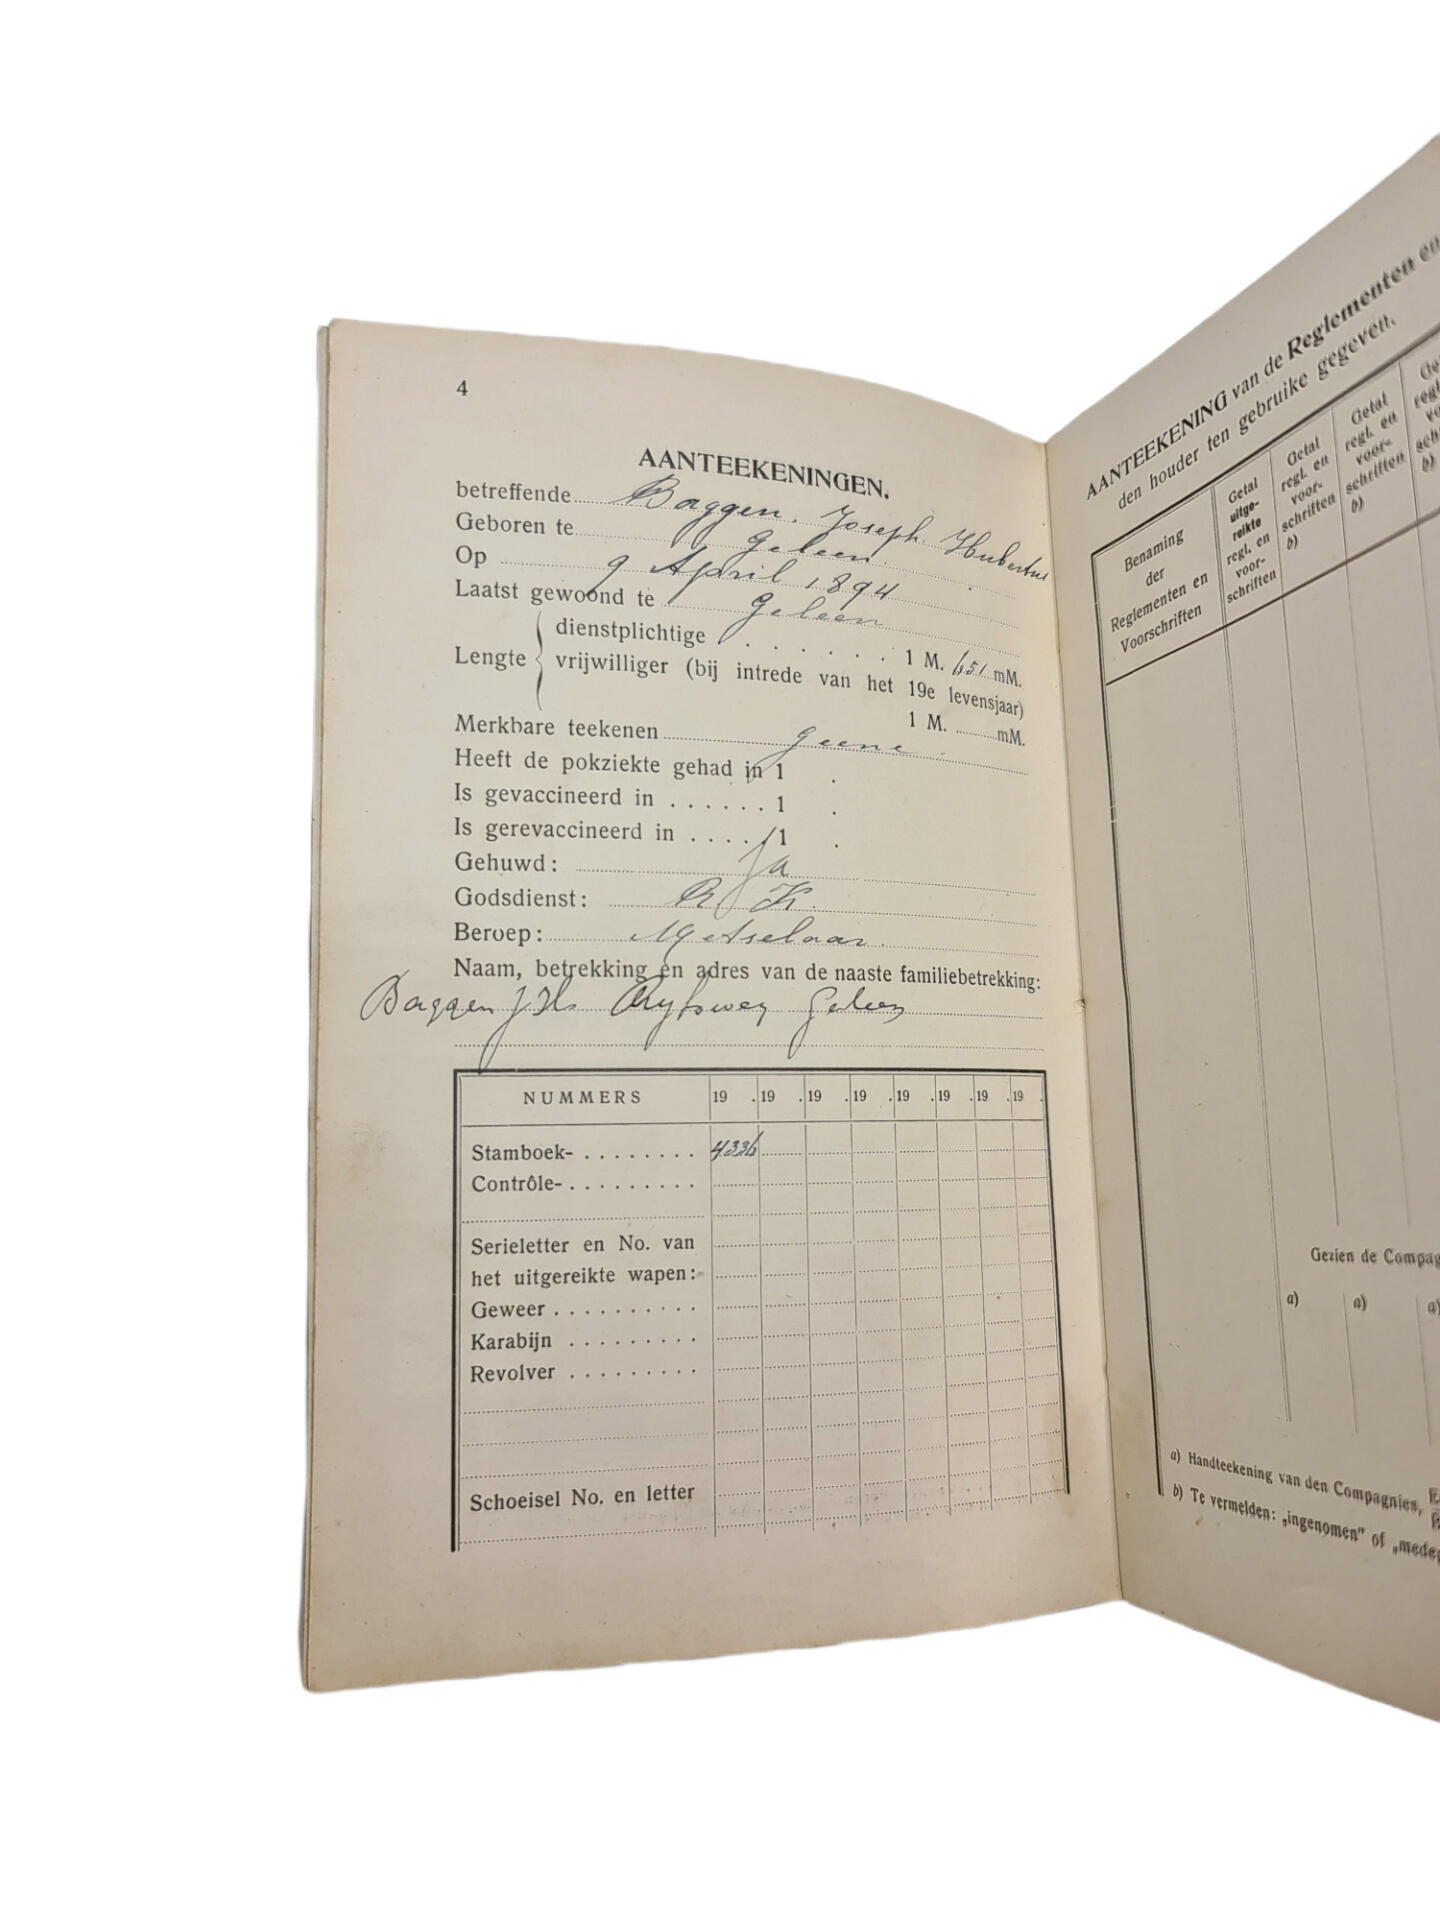 4
AANTEEKENINGEN.
betreffende Baggen, Joseph Hubertus
Geboren te Geleen
Op 9 April 1894
Laatst gewoond te Geleen
Lengte
dienstplichtige . . . . . . . 1 M. 651 mM.
vrijwilliger (bij intrede van het 19e levensjaar)
1 M. mM.
Merkbare teekenen geene
Heeft de pokziekte gehad in 1 .
Is gevaccineerd in . . . . . . 1 .
Is gerevaccineerd in . . . . . 1 .
Gehuwd: Ja
Godsdienst: R K.
Beroep: Metselaar.
Naam, betrekking en adres van de naaste familiebetrekking:
Baggen Geleen
NUMMERS 19 . 19 . 19 . 19 . 19 . 19 . 19 . 19 .
Stamboek- . . . . . . . . 4336
Contrôle- . . . . . . . . .
Serieletter en No. van
het uitgereikte wapen:
Geweer . . . . . . . . . .
Karabijn . . . . . . . . .
Revolver . . . . . . . . .
Schoeisel No. en letter
AANTEEKENING van de Reglementen en
den houder ten gebruike gegeven.
Benaming
der
Reglementen en
Voorschriften
Getal
uitge-
reikte
regl. en
voor-
schriften
Getal
regl. en
voor-
schriften
b)
Getal
regl. en
voor-
schriften
b)
b)
Gezien de Compag
a) a) a)
a) Handteekening van den Compagnies,
b) Te vermelden: „ingenomen” of „medeg